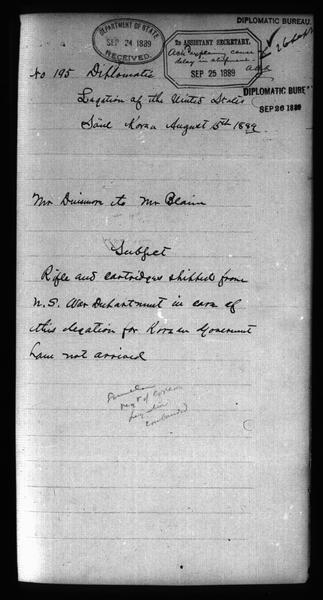 DIPLOMATIC BUREAU.
DEPARTMENT OF STATE
SEP 24 1889
RECEIVED.
To ASSISTANT SECRETARY.
Ask explaining cause
delay in shipment
SEP 25 1889
DIPLOMATIC BURE
SEP 26 1889
No 195 Diplomatic
Legation of the United States
Söul Korea August 5th 1889
Mr Dinsmore to Mr Blaine
Subject
Rifle and cartridges shipped from
U.S. War Department in care of
this legation for Korean Government
have not arrived